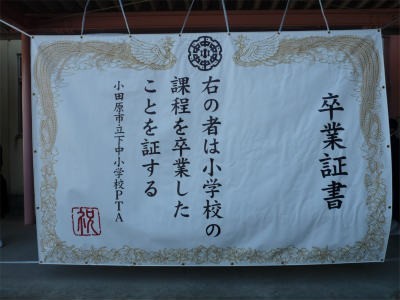 卒業証書
右の者は小学校の
課程を卒業した
ことを証する
小田原市立下中小学校PTA
祝